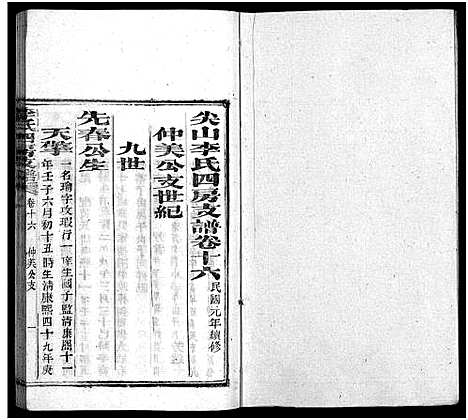 尖山李氏四房支譜卷十六 民國元年續修
仲美公支世紀
九世
先春公生
天擎
一名瑜字攻瑕行一庠生國子監清康熙十一
年壬子六月初十丑時生清康熙四十九年庚
李氏四房支譜 卷十六 仲美公支 一